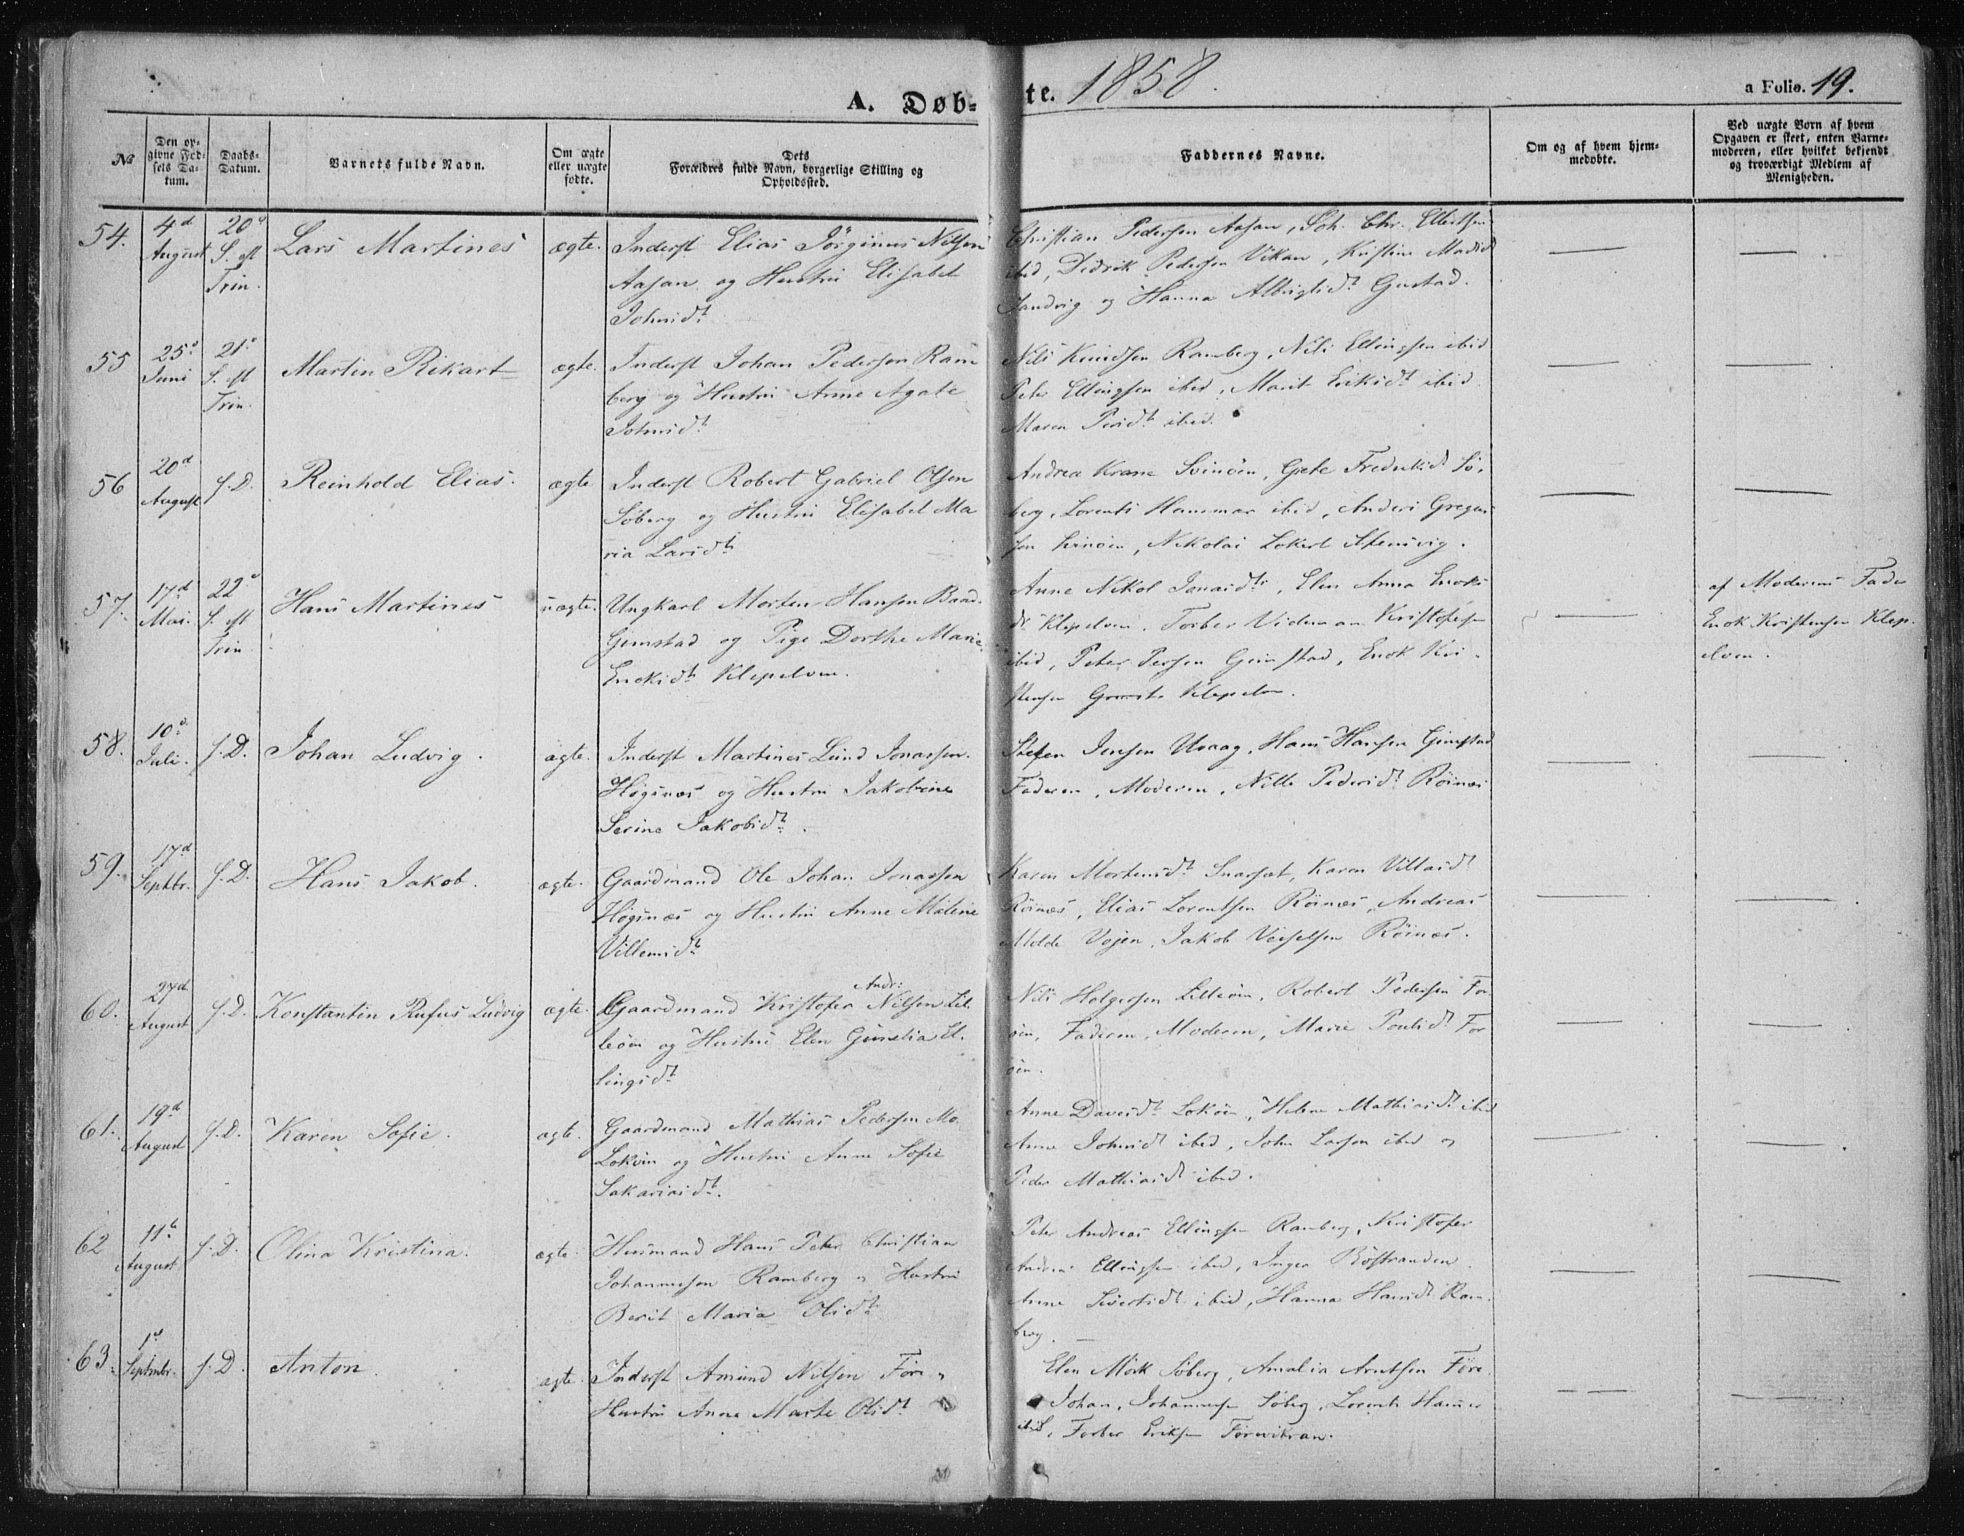 A. Døb-
te. 1858.
a Folio. 19.
No
Den op-
givne Fød-
sels Da-
tum.
Daabs-
Datum.
Barnets fulde Navn.
Om ægte
eller uægte
fødte.
Dets
Forældres fulde Navn, borgerlige Stilling og
Opholdssted.
Faddernes Navne.
Om og af hvem hjem-
medøbte.
Ved uægte Børn af hvem
Opgaven er skeet, enten Barne-
moderen, eller hvilket bekjendt
og troværdigt Medlem af
Menigheden.
54. 4d August 20d S. eft Trin. Lars Martines ægte.
Inderst Elias Jørginus Nilsen
Aasan og Hustru Elisabet
Johnsdt.
Christian Pedersen Aasan, Joh. Chr. Ellertsen
ibid, Didrik Pedersen Vikan, Kristine
Sandvig og Hanna Gustad.
55 25d Juni 21d S. eft Trin. Martin Rikart ægte.
Inderst Johan Pedersen Ram
berg og Hustru Anne Agate
Johnsdt.
Nils Knudsen Ramberg, Nils Ellingsen ibid
Peter Ellingsen ibid, Marit Eriksdt ibid
Maren Persdt ibid.
56 20d August s.D. Reinhold Elias. ægte
Inderst Robert Gabriel Olsen
Søberg og Hustru Elisabet Ma
ria Larsdt
Andrea Krane Svinøen, Grete Fredriksdt Sø-
berg, Lorents Hammar ibid, Anders Gregus
sen Svinøen, Nikolai Lokert
57. 17d Mai. 22d S. eft Trin. Hans Martines uægte.
Ungkarl Morten Hansen Baad
Gimstad og Pige Dorthe Marie
Enoksdt. Klepelven.
Anne Nikol. Jonasdt, Elen Anna Enoks
dt Klepelven, Torber Kristofersen
ibid, Peter Persen Gimstad, Enok Kri-
stensen Klepelv.
af Moderens Fader
Enok Kristensen Klep-
elven.
58. 10d Juli. s.D. Johan Ludvig. ægte.
Inderst Martines Lund Jonassen
Høgsnæs og Hustru Jakobine
Serine Jakobsdt.
Steffen Jensen Hans Hansen Gimstad
Faderen, Moderen, Nille Pedersdt Röinæs
59. 17d Septbr. s.D. Hans Jakob. ægte.
Gaardmand Ole Johan Jonassen
Høgsnæs og Hustru Anne Malene
Villumsdt
Karen Mortensdt Snarset, Karen Villasdt
Röinæs, Elias Lorentsen Röinæs, Andreas
Molde Vojen, Jakob Röinæs.
60. 27d August s.D. Konstantin Rufus Ludvig ægte.
Andr:
Gaardmand Kristofer Nilsen Lil-
leøen og Hustru Elen Gunelia El-
lingsdt
Nils Holgersen Lilleøen, Robert Pedersen For
øen, Faderen, Moderen, Marie Poulsdt For
øen.
61. 19d August s.D. Karen Sofie. ægte.
Gaardmand Mathias Pedersen Mo
Lokøen og Hustru Anne Sofie
Sakariasdt.
Anne Davidsdt. Lokøen, Helene Mathiasdt ibid
Anne Johnsdt ibid, John Larsen ibid og
Peder Mathiasdt ibid.
62 11t August s.D. Olina Kristina. ægte
Husmand Hans Peter Christian
Johannessen Ramberg og Hustru
Berit Maria Olsdt
Peter Andreas Ellingsen Ramberg, Kristofer
Andreas Ellingsen ibid, Inger Böstranden
Anne Sivertsdt ibid, Hanna Hansdt Ram-
berg.
63. 1d Septmbr. s.D. Anton. ægte.
Inderst Amund Nilsen Føre og
Hustru Anne Marte Olsdt
Elen Mörk Søberg, Amalia Arntsen Føre
Johan Johannessen Søberg, Lorents Hammer
ibid, Torber Eriksen